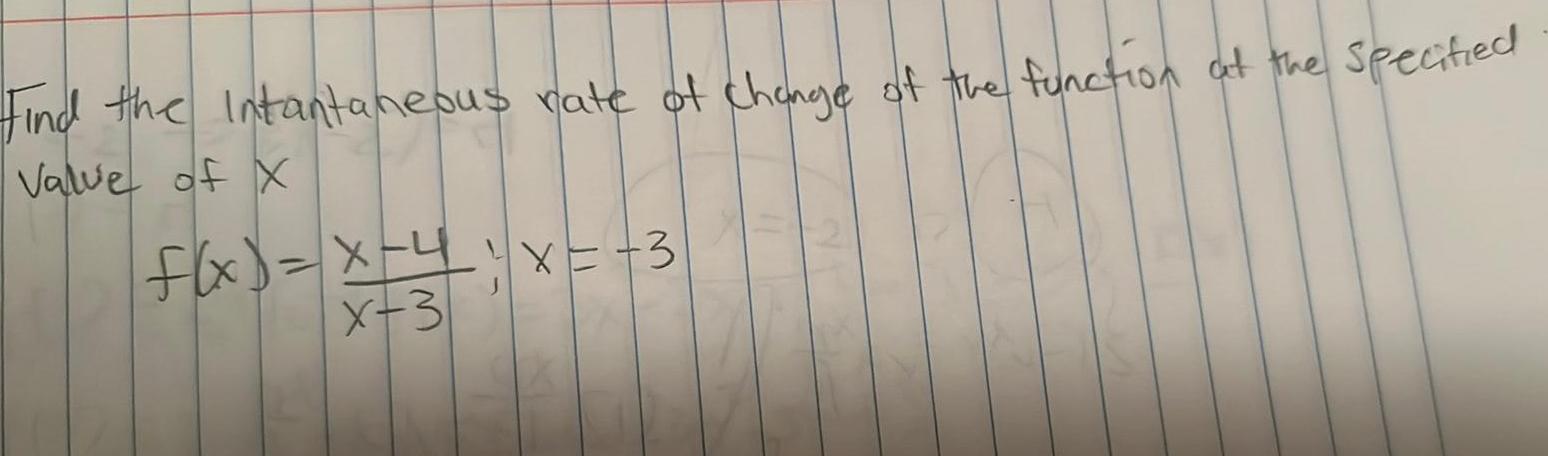 Find the Intantaneous rate of change of the function at the specified
value of x
f(x) = x-4 / x-3 ; x = -3